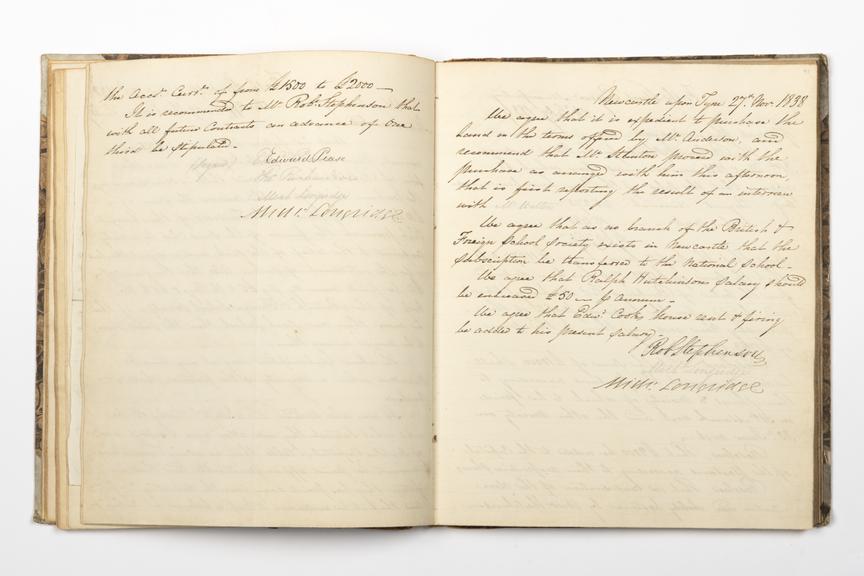 the Accts. Currt. of from £1500 to £2000 —
It is recommended to Mr. Robt. Stephenson that
with all future Contracts an advance of One
third be stipulated —
(signed) Edward Pease
Thos. Richardson
Michl. Longridge
Michl. Longridge
Newcastle upon Tyne 27th. Nov. 1838
We agree that it is expedient to purchase the
Land on the terms offered by Mr. Anderson, and
recommend that Mr. Stanton proceed with the
purchase as arranged with him this afternoon,
that is first reporting the result of an interview
with Mr.
We agree that as no branch of the British &
Foreign School Society exists in Newcastle that the
subscription be transferred to the National School —
We agree that Ralph Hutchinsons Salary should
be increased £50 — p annum —
We agree that Edwd. Cooks house rent & firing
be added to his present salary —
Rob Stephenson
Michl. Longridge
Michl. Longridge